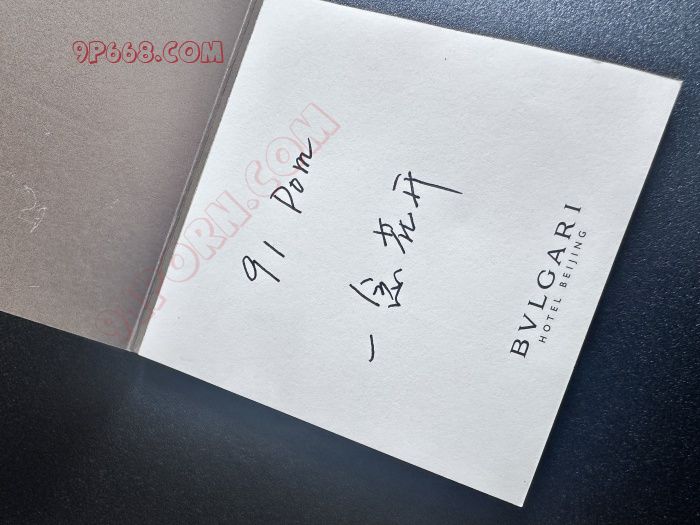 9P668.COM
91PORN.COM
91 Porn
一念花开
BVLGARI
HOTEL BEIJING